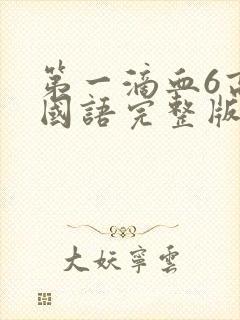 第一滴血6高
國語完整版
大妖寧雲